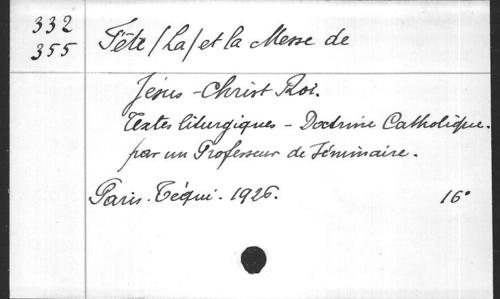 332
355
Fête (La) et la Messe de
Jésus-Christ Roi.
Textes liturgiques - Doctrine Catholique.
par un Professeur de Séminaire.
Paris. Téqui. 1926. 16°